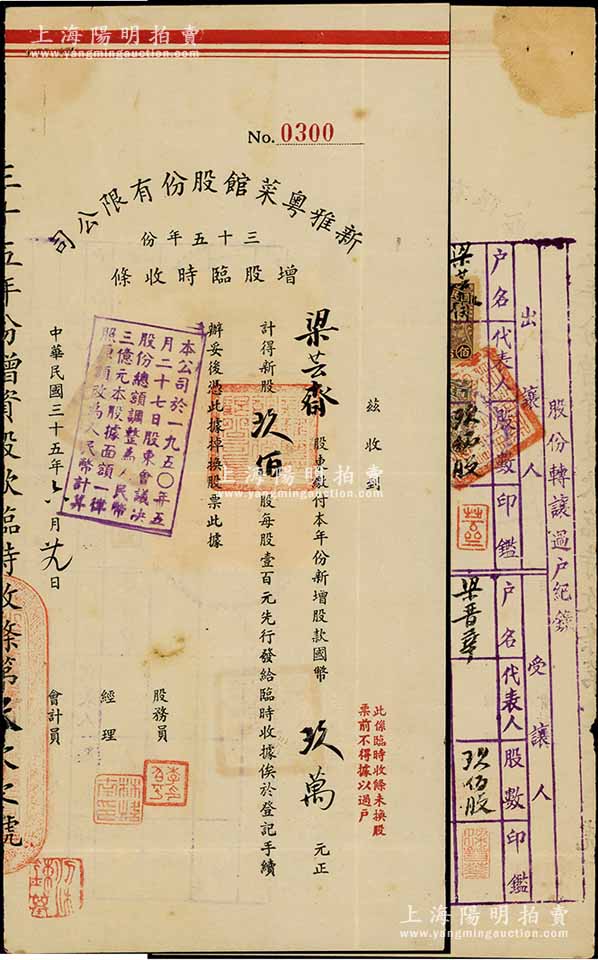 上海陽明拍賣
www.yangmingauction.com
No. 0300
新雅粵菜館股份有限公司
三十五年份
增股臨時收條
茲收到
梁芸齋 股東繳付本年份新增股款國幣 玖萬 元正
計得新股 玖佰 股每股壹百元先行發給臨時收據俟於登記手續
辦妥後憑此據掉換股票此據
此係臨時收條未換股
票前不得據以過戶
本公司於一九五〇年五
月二十七日股東會議决
股份總額調整為人民幣
三億元本股據面額一律
照原額改為人民幣計算
股務員
經理
會計員
中華民國三十五年六月廿九日
三十五年份增資股款臨時收條第
號
股份轉讓過戶紀錄
出讓人
戶名
代表人
股數
印鑑
玖佰股
受讓人
戶名
代表人
股數
印鑑
梁晋華
玖佰股
上海陽明拍賣
www.yangmingauction.com